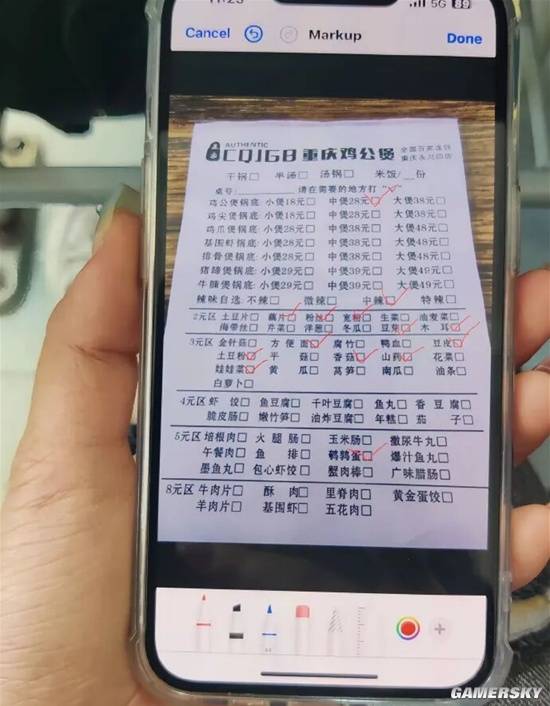 11:23 5G 89
Cancel Markup Done
AUTHENTIC
CQJGB 重庆鸡公煲 全国百家连锁
重庆永川四店
干锅□ 半汤□ 汤锅□ 米饭/__份
桌号:________ 请在需要的地方打“✓”
鸡公煲锅底:小煲18元□ 中煲28元□ 大煲38元□
鸡尖煲锅底:小煲18元□ 中煲28元□ 大煲38元□
鸡爪煲锅底:小煲28元□ 中煲38元□ 大煲48元□
基围虾锅底:小煲28元□ 中煲38元□ 大煲48元□
排骨煲锅底:小煲28元□ 中煲38元□ 大煲48元□
猪蹄煲锅底:小煲29元□ 中煲39元□ 大煲49元□
牛腩煲锅底:小煲29元□ 中煲39元□ 大煲49元□
辣味自选:不辣□ 微辣□ 中辣□ 特辣□
2元区 土豆片□ 藕片□ 粉丝□ 宽粉□ 生菜□ 油麦菜□
海带丝□ 芹菜□ 洋葱□ 冬瓜□ 豆芽□ 木耳□
3元区 金针菇□ 方便面□ 腐竹□ 鸭血□ 豆皮□
土豆粉□ 平菇□ 香菇□ 山药□ 花菜□
娃娃菜□ 黄瓜□ 莴笋□ 南瓜□ 油条□
白萝卜□
4元区 虾饺□ 鱼豆腐□ 千叶豆腐□ 鱼丸□ 香豆腐□
脆皮肠□ 嫩竹笋□ 油炸豆腐□ 年糕□ 茄子□
5元区 培根肉□ 火腿肠□ 玉米肠□ 撒尿牛丸□
午餐肉□ 鱼排□ 鹌鹑蛋□ 爆汁鱼丸□
墨鱼丸□ 包心虾饺□ 蟹肉棒□ 广味腊肠□
8元区 牛肉片□ 酥肉□ 里脊肉□ 黄金蛋饺□
羊肉片□ 基围虾□ 五花肉□
GAMERSKY